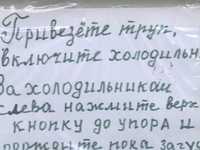 Привезёте труп,
включите холодильн
За холодильником
слева нажмите верх
кнопку до упора и
подождите пока загу